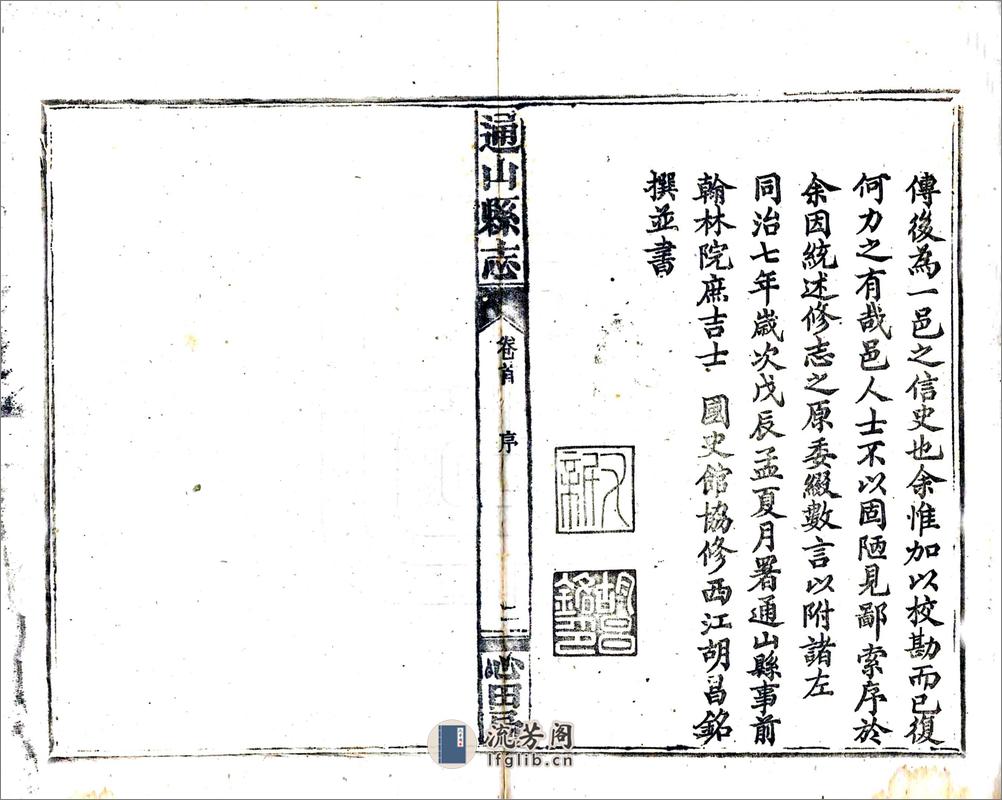 傳後為一邑之信史也余惟加以校勘而已復
何力之有哉邑人士不以固陋見鄙索序於
余因統述修志之原委綴數言以附諸左
同治七年歲次戊辰孟夏月署通山縣事前
翰林院庶吉士 國史館協修西江胡昌銘
撰並書
胡昌銘印
通山縣志
卷首 序 二
心田
流芳阁
lfglib.cn